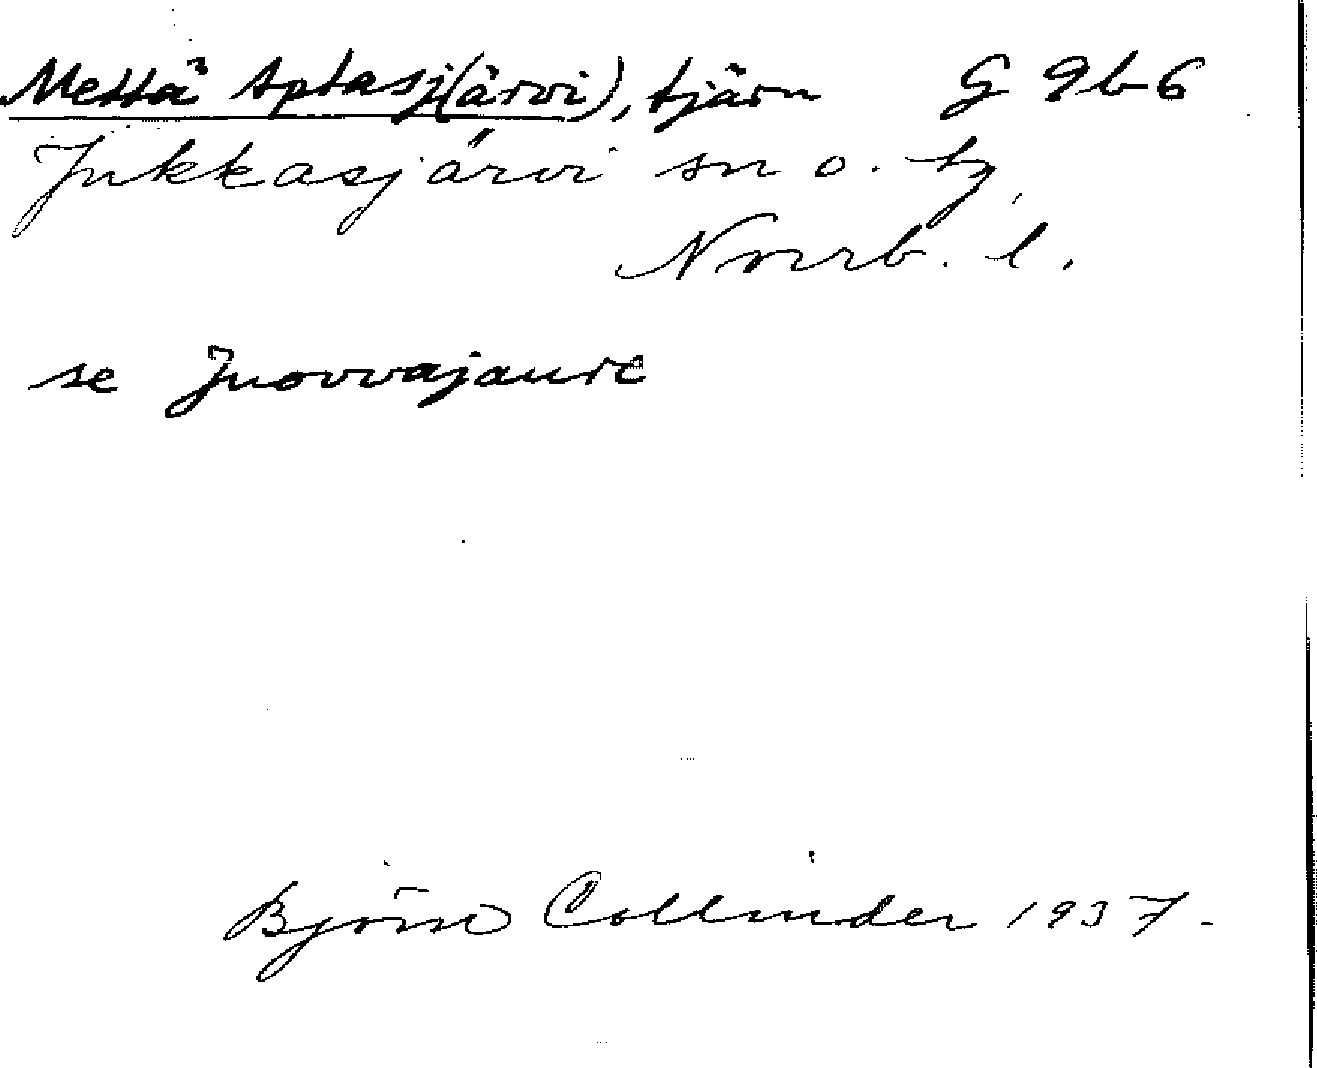 Mettä Aptasj(ärvi), tjärn G 9b6
Jukkasjärvi sn o. tg,
Norrb. l.
se Juovvajaure
Björn Collinder 1937.